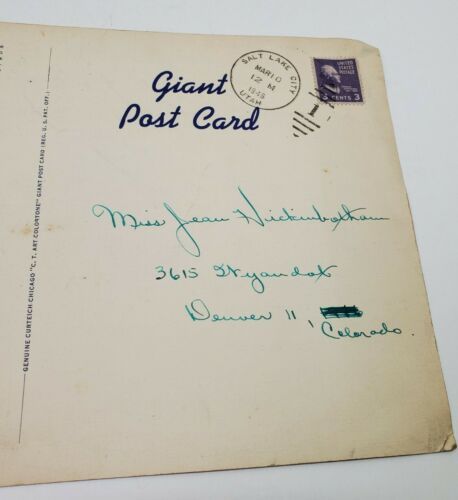 Giant
Post Card
SALT LAKE CITY
MAR 10
12 M
UTAH
UNITED STATES
POSTAGE
3 CENTS 3
1
Miss Jean Hickinbotham
3615 Wyandot
Denver 11
Colorado.
GENUINE CURTEICH-CHICAGO "C. T. ART-COLORTONE" GIANT POST CARD (REG. U. S. PAT. OFF.)